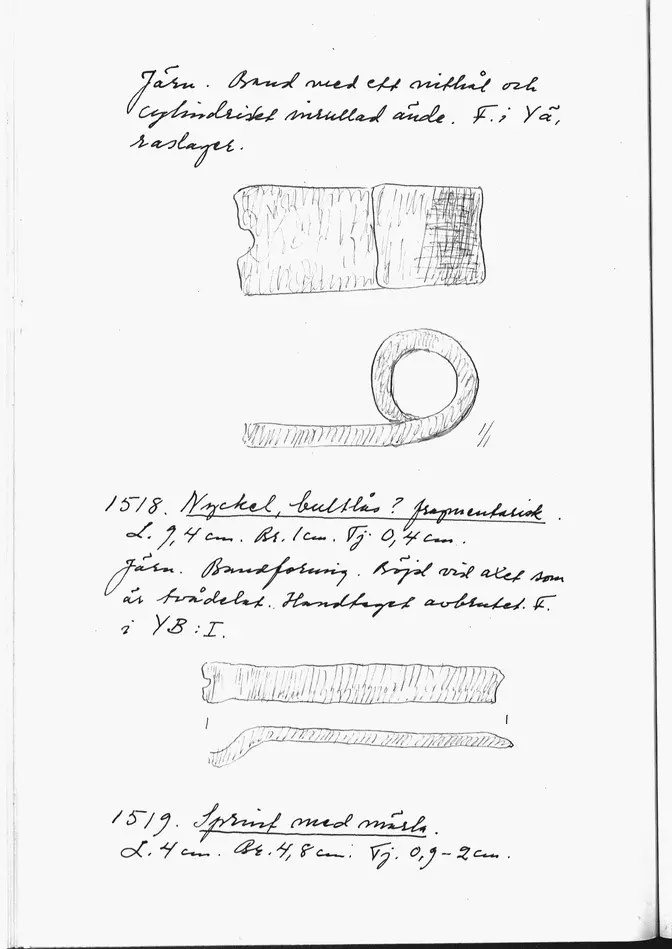 Järn. Band med ett nithål och
cylindriskt inrullad ände. F. i Yä,
raslager.
1/1
1518. Nyckel, bultlås? fragmentarisk.
L. 9,4 cm. Br. 1 cm. Tj. 0,4 cm.
Järn. Bandformig. Böjd vid axet som
är tvådelat. Handtaget avbrutet. F.
i YB:I.
1519. Sprint med märla.
L. 4 cm. Br. 4,8 cm. Tj. 0,9-2 cm.